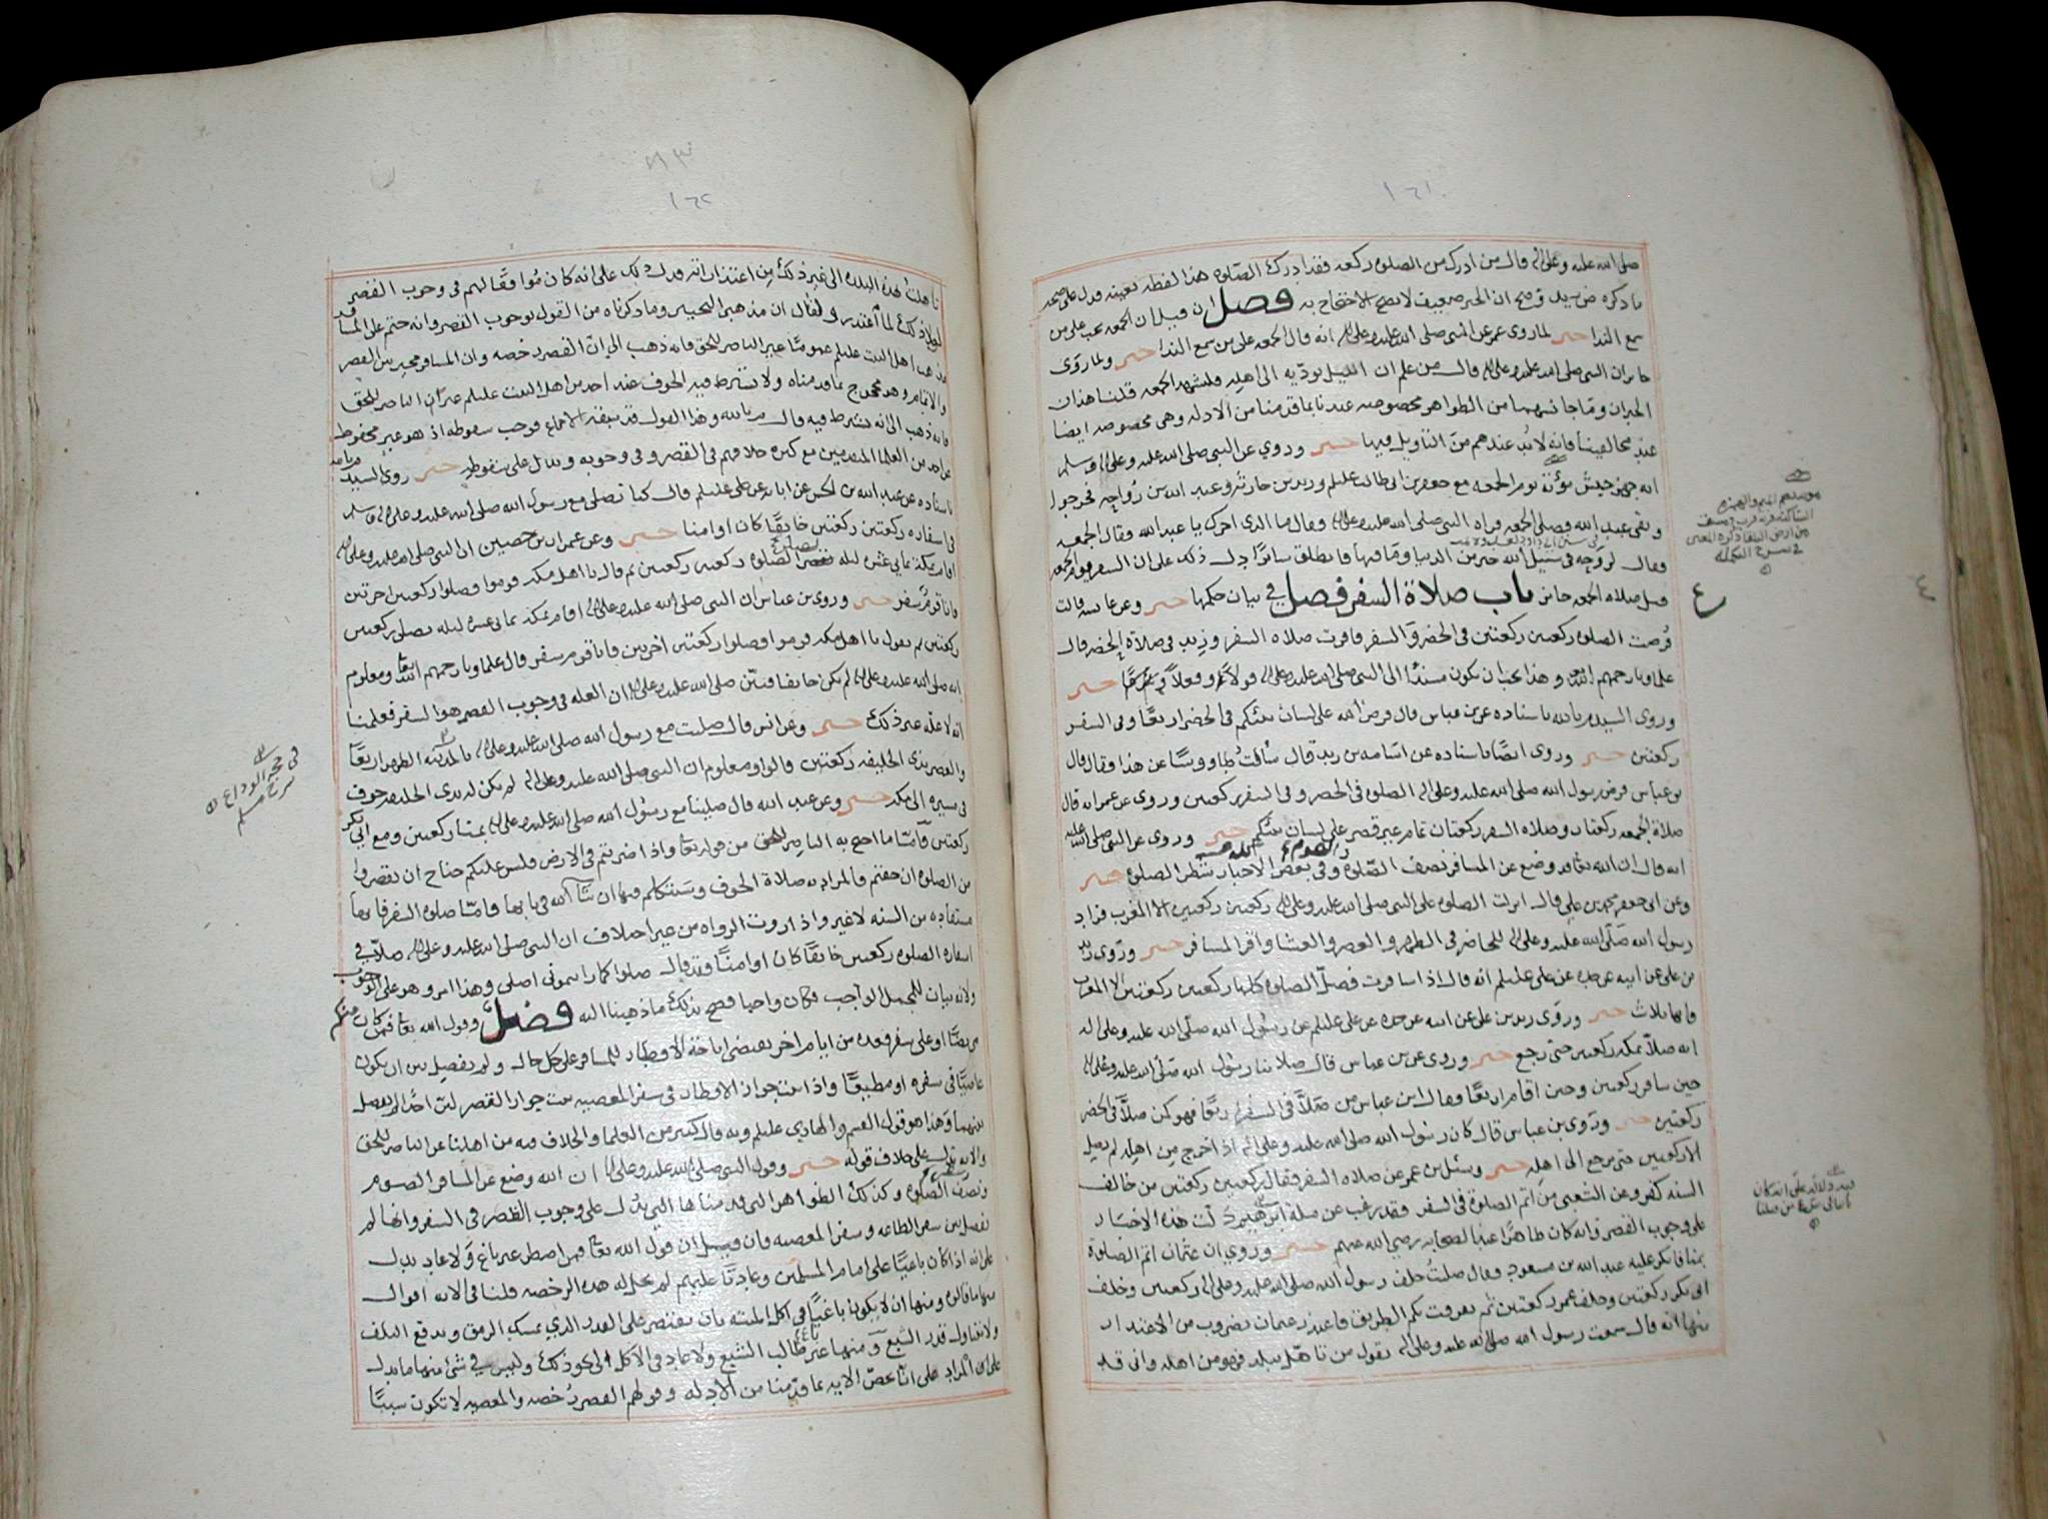 ١٦١
صلى الله عليه وعلى اله قال من ادرك من الصلوه ركعه فقد ادرك الصلوه هذا لفظه بعينه فدل على صحه
ما ذكره وصح ان الخبر ضعيف لا يصح الاحتجاج به فصل ان قيل ان الجمعه تجب على من
سمع الندا خبر لما روى عمر عن النبي صلى الله عليه وعلى اله انه قال الجمعه على من سمع الندا خبر ولما روى
جابر ان النبي صلى الله عليه وعلى اله قال من علم ان الليل يوديه الى اهله فليشهد الجمعه قلنا هذان
الخبران وما جانسهما من الظواهر مخصوصه عندنا بما قدمنا من الادله وهي مخصوصه ايضا
عند مخالفينا فانه لا بد عندهم من التاويل فيها خبر وروي عن النبي صلى الله عليه وعلى اله وسلم
انه جهز جيش مؤته يوم الجمعه مع جعفر بن ابي طالب عليلم وزيد بن حارثه وعبد الله بن رواحه فخرجوا
وبقى عبد الله فصلى الجمعه فراه النبي صلى الله عليه وعلى اله وقال ما الذي اخرك يا عبد الله فقال الجمعه
فقال لروحه في سبيل الله خير من الدنيا وما فيها فانطلق سائرا دل ذلك على ان السفر يوم الجمعه
قبل صلاه الجمعه جائز باب صلاة السفر فصل في بيان حكمها خبر وعن عائشه قالت
فرضت الصلوه ركعتين ركعتين في الحضر والسفر فاقرت صلاه السفر وزيد في صلاة الحضر قال
علماونا رحمهم الله وهذا يجب ان يكون مسندا الى النبي صلى الله عليه وعلى اله قولا وفعلا خبر
وروى السيد م بالله باسناده عن بن عباس قال فرض الله على لسان نبيكم في الحضر اربعا وفي السفر
ركعتين خبر وروى ايضا باسناده عن اسامه بن زيد قال سألت طاووسا عن هذا فقال قال
بن عباس فرض رسول الله صلى الله عليه وعلى اله الصلوه في الحضر وفي السفر ركعتين وروى عن عمر انه قال
صلاة الجمعه ركعتان وصلاه السفر ركعتان تمام غير قصر على لسان نبيكم خبر وروى عن النبي صلى الله عليه
انه قال ان الله تعالى وضع عن المسافر نصف الصلوه وفي بعض الاخبار شطر الصلوه خبر
وعن ابي جعفر محمد بن علي قال انزلت الصلوه على النبي صلى الله عليه وعلى اله ركعتين ركعتين الا المغرب فزاد
رسول الله صلى الله عليه وعلى اله للحاضر في الظهر والعصر والعشا واقر المسافر خبر وروى زيد
بن علي عن ابيه عن جده عن علي عليلم انه قال اذا سافرت فصل الصلوه كلها ركعتين ركعتين الا المغرب
فانها ثلاث خبر وروى زيد بن علي عن ابيه عن جده عن علي عليلم عن رسول الله صلى الله عليه وعلى اله
انه صلا بمكه ركعتين حتى رجع خبر وروى عن بن عباس قال صلا بنا رسول الله صلى الله عليه وعلى اله
حين سافر ركعتين وحين اقام اربعا وقال ابن عباس من صلا في السفر اربعا فهو كمن صلا في الحضر
ركعتين خبر وروى بن عباس قال كان رسول الله صلى الله عليه وعلى اله اذا خرج من اهله لم يصل
الا ركعتين حتى يرجع الى اهله خبر وسئل بن عمر عن صلاه السفر فقال ركعتين ركعتين من خالف
السنه كفر وعن الشعبي من اتم الصلوة في السفر فقد رغب عن ملة ابرهيم دلت هذه الاخبار
على وجوب القصر وانه كان ظاهرا عند الصحابه رضي الله عنهم خبر وروي ان عثمان اتم الصلوة
بمنا فانكر عليه عبد الله بن مسعود وقال صليت خلف رسول الله صلى الله عليه وعلى اله ركعتين وخلف
ابي بكر ركعتين وخلف عمر ركعتين ثم تفرقت بكم الطريق فاعتذر عثمان بضروب من الاعتذار
منها انه قال سمعت رسول الله صلى الله عليه وعلى اله يقول من تاهل ببلد فهو من اهله واني قد
١٦٢
تاهلت بهذه البلده الى غير ذلك من اعتذاراته فدل ذلك على انه كان موافقا لهم في وجوب القصر
لولا ذلك لما اعتذر ولقال ان مذهبي التخيير وما ذكرناه من القول بوجوب القصر وانه حتم على المسافر
مذهب اهل البيت عليلم عموما غير الناصر للحق فانه ذهب الى ان القصر رخصه وان المسافر مخير بين القصر
والاتمام وهو محجوج بما قدمناه ولا يشترط فيه الخوف عند احد من اهل البيت عليلم غير ان الناصر للحق
فانه ذهب الى انه يشترط فيه قال م بالله وهذا القول قد سبقه الاجماع فوجب سقوطه اذ هو غير محفوظ
عن احد من العلما المتقدمين مع كثره خلافهم في القصر وفي وجوبه ويدل على سقوطه خبر روى السيد م بالله
باسناده عن عبد الله بن الحسن عن ابائه عن علي عليلم قال كنا نصلي مع رسول الله صلى الله عليه وعلى اله وسلم
في اسفاره ركعتين ركعتين خائفا كان او امنا خبر وعن عمران بن حصين ان النبي صلى الله عليه وعلى اله
اقام بمكة ثماني عشره ليله يصلي ركعتين ركعتين ثم قال يا اهل مكه قوموا فصلوا ركعتين اخرتين
فانا قوم سفر خبر وروى بن عباس ان النبي صلى الله عليه وعلى اله اقام بمكه ثماني عشره ليله يصلي ركعتين
ركعتين ثم يقول يا اهل مكه قوموا فصلوا ركعتين اخريين فانا قوم سفر قال علماونا رحمهم الله تعالى ومعلوم
انه صلى الله عليه وعلى اله لم يكن خائفا فبين صلى الله عليه وعلى اله ان العله في وجوب القصر هو السفر فعلمنا
انه لا عله غير ذلك خبر وعن انس قال صليت مع رسول الله صلى الله عليه وعلى اله بالمدينه الظهر اربعا
والعصر بذي الحليفه ركعتين قالوا ومعلوم ان النبي صلى الله عليه وعلى اله لم يكن له بذي الحليفه خوف
في مسيره الى مكه خبر وعن عبد الله قال صلينا مع رسول الله صلى الله عليه وعلى اله بمنا ركعتين ومع ابي بكر
ركعتين فاما ما احتج به الناصر للحق من قوله تعالى واذا ضربتم في الارض فليس عليكم جناح ان تقصروا
من الصلوه ان خفتم فالمراد به صلاة الخوف وسنتكلم فيها ان شآ الله في بابها فاما صلوه السفر فانها
مستفاده من السنه لا غير واذا روت الرواه من غير اختلاف ان النبي صلى الله عليه وعلى اله صلا في
اسفاره الصلوه ركعتين خائفا كان او امنا وقد قال صلوا كما رايتموني اصلي وهذا امر وهو على الوجوب
ولانه بيان للمجمل الواجب فكان واجبا فصح بذلك ما ذهبنا اليه فصل وقول الله تعالى فمن كان منكم
مريضا او على سفر فعده من ايام اخر يقتضي اباحة الافطار للمسافر على كل حال ولم يفصل بين ان يكون
عاصيا في سفره او مطيعا واذا ثبت جواز الافطار في سفر المعصيه ثبت جواز القصر لان احدا لم يفصل
بينهما وهذا هو قول القسم والهادي عليلم وبه قال كثير من العلما والخلاف فيه من اهلنا عن الناصر للحق
والايه تدل على خلاف قوله خبر وقول النبي صلى الله عليه وعلى اله ان الله وضع عن المسافر الصوم
ونصف الصلوه وكذلك الظواهر التي قدمناها التي تدل على وجوب القصر في السفر وانها لم
تفصل بين سفر الطاعه وسفر المعصيه فان قيل ان قول الله تعالى فمن اضطر غير باغ ولا عاد يدل
على انه اذا كان باغيا على امام المسلمين وعاديا عليهم لم يحل له هذه الرخصه قلنا في الايه اقوال
منها ما قالوه ومنها ان لا يكون باغيا في اكل الميته بان يقتصر على القدر الذي يمسك الرمق ويدفع التلف
ولا يتناول قدر الشبع ومنها غير طالب الشبع ولا عاد في الاكل الى نحو ذلك وليس في شئ منها ما يدل
على ان المراد على انا نخص الايه بما قدمنا من الادله وقولهم القصر رخصه والمعصيه لا تكون سببا
في حجة الوداع
شرح مسلم